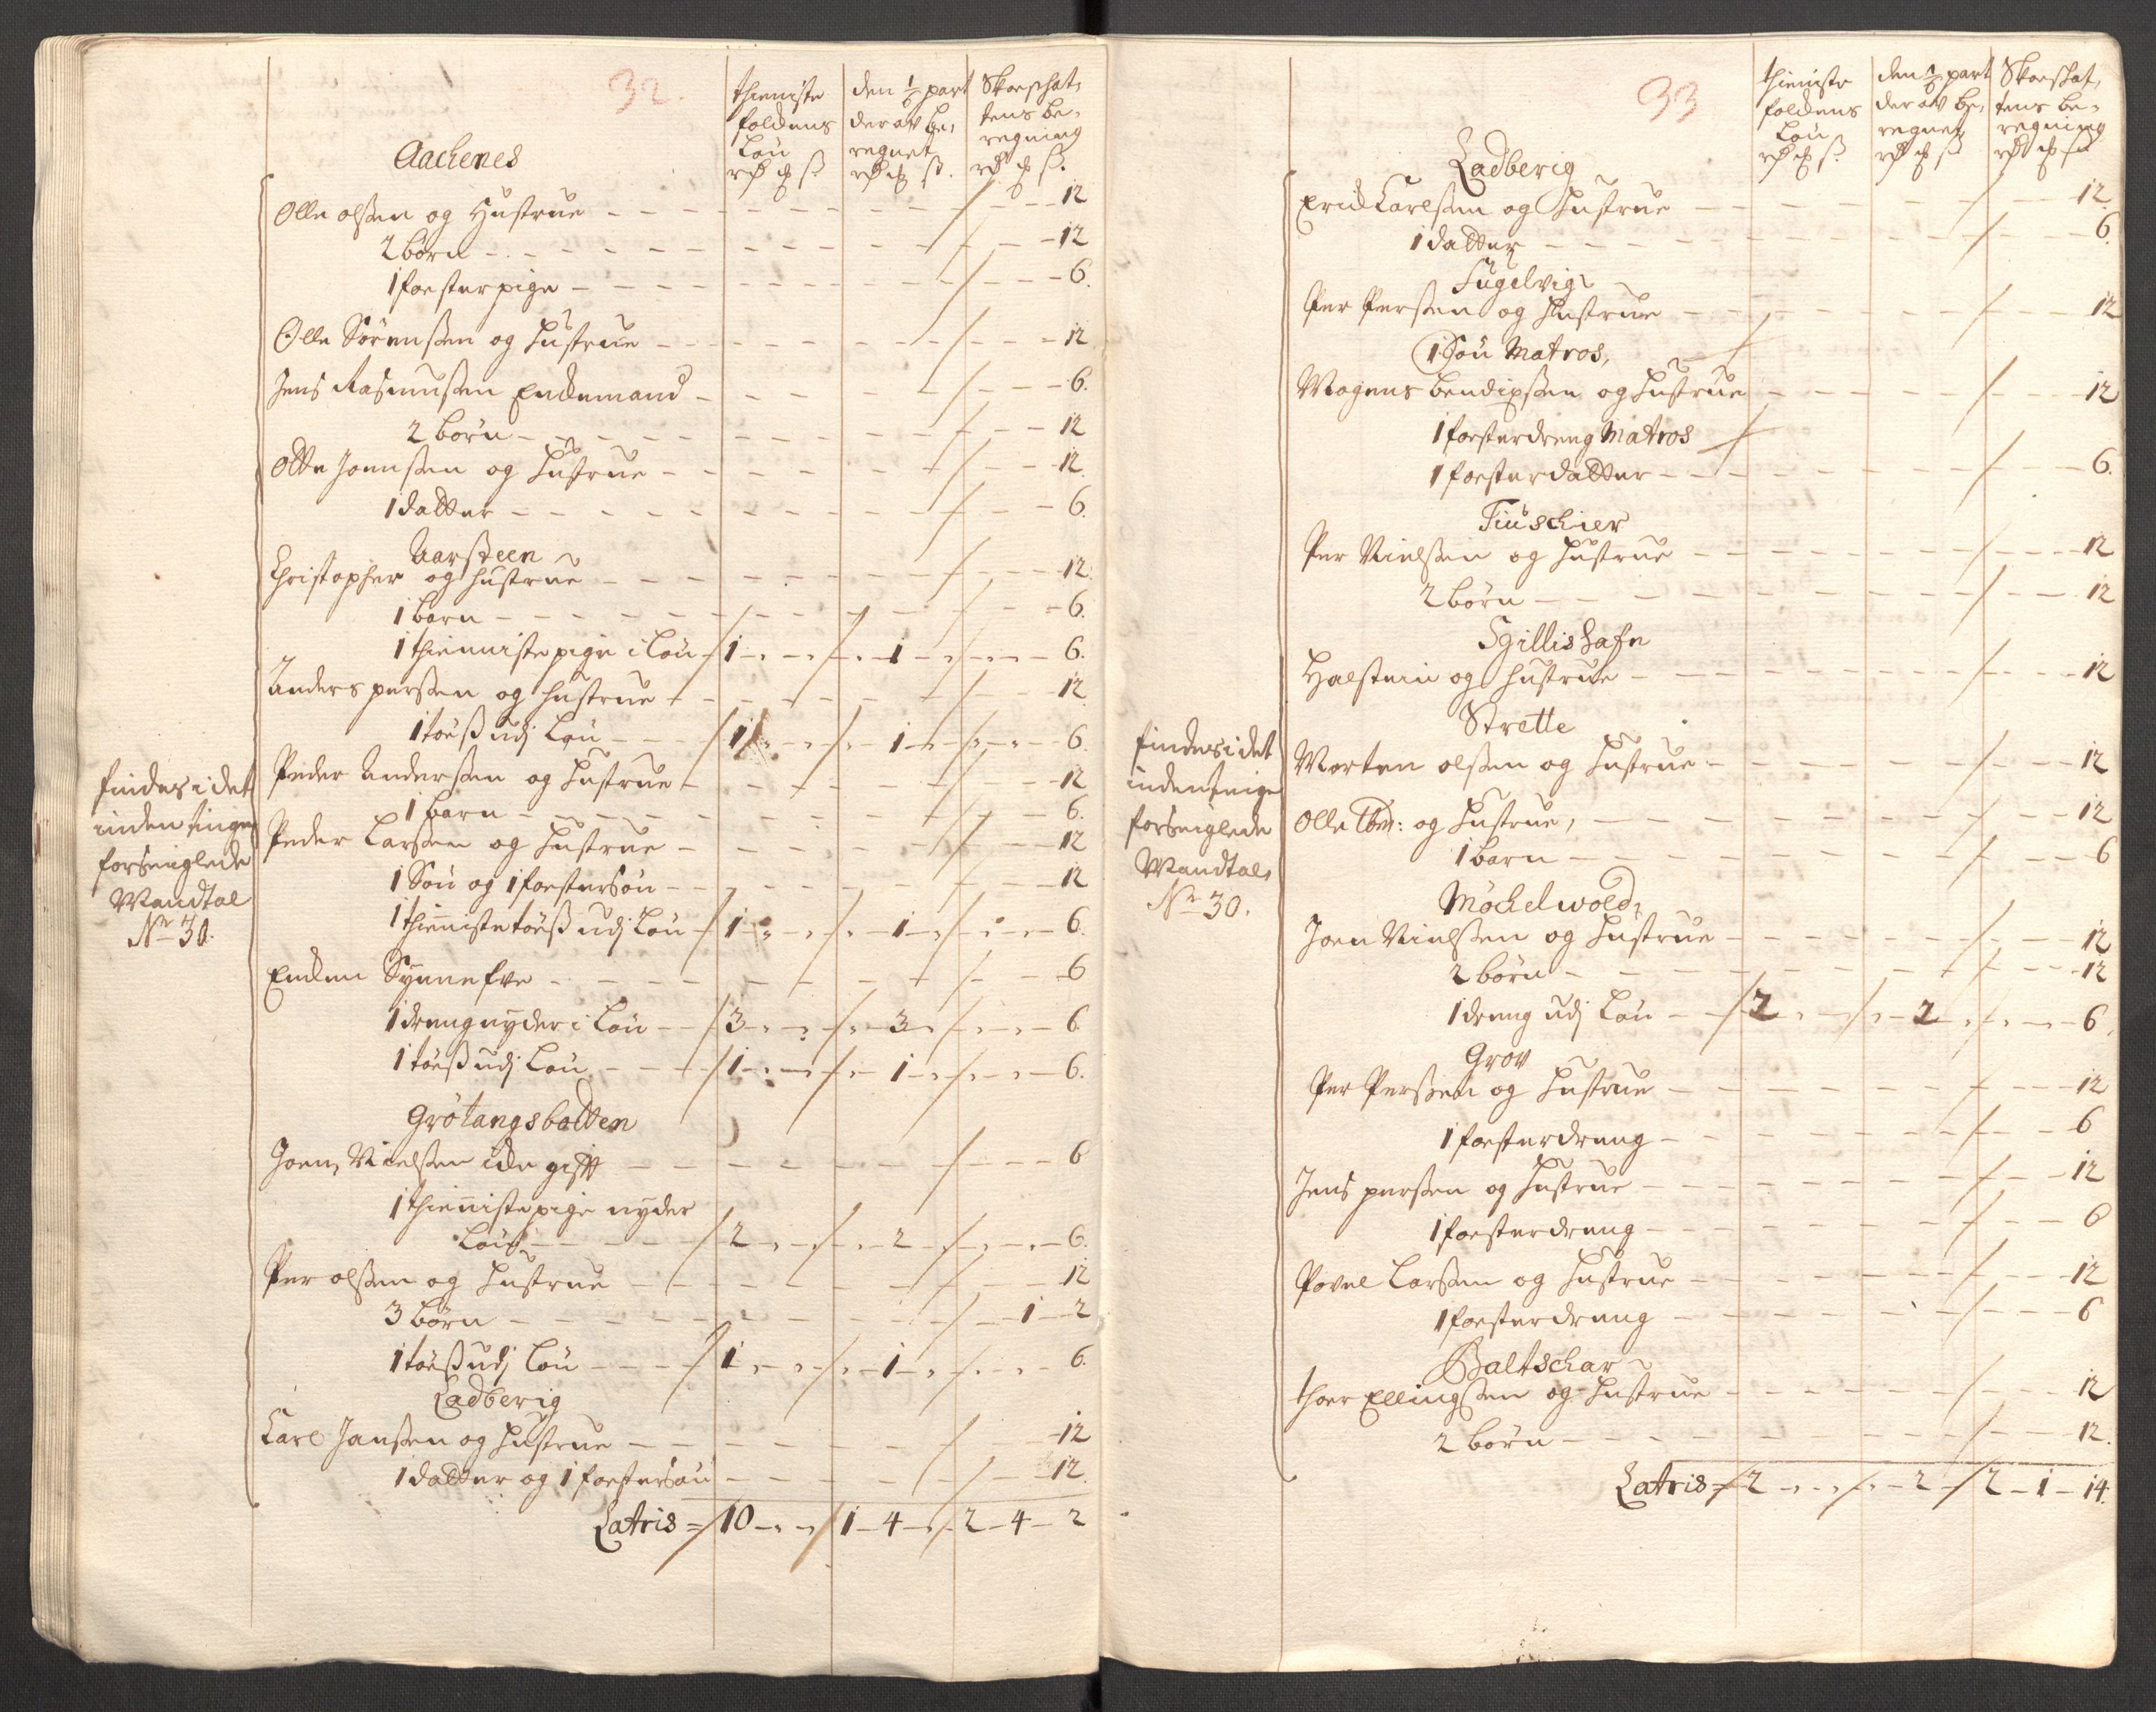 32.
thieniste
foldens
Løn
rdr ort ß.
den 1/6 part
der av be,
regnet
rdr ort ß.
Skoeschat,
tens be,
regning
rdr ort ß.
Aachenes
Olle olßen og Hustrue - - - 12
2 børn - - - 12
1 foesterpige - - - 6.
Olle Sørenßen og Hustrue - - - 12
Jens Rasmußen Enckemand - - - 6.
2 børn - - - 12
Otte Joenßen og Hustrue - - - 12.
1 datter - - - 6.
Aarsteen
Christopher og Hustrue - - - 12.
1 barn - - - 6.
1 thienniste pige i Løn / 1 - „ - „ / „ - 1 - „ / „ - „ - 6.
Anders perßen og Hustrue - - - 12
1 tøeß udj Løn - - / 1 - „ - „ / „ - 1 - „ / „ - „ - 6.
Peder Anderßen og Hustrue - - - 12
1 barn - - - 6.
Peder Larßen og Hustrue - - - 12
1 Søn og 1 foestersøn - - - 12
1 thienniste tøeß udj Løn / 1 - „ - „ / „ - 1 - „ / „ - „ - 6.
Encken Synnefve - - - 6
1 dreng nyder i Løn - - / 3 - „ - „ / „ - 3 - „ / „ - „ - 6
1 tøeß udj Løn - - / 1 - „ - „ / „ - 1 - „ / „ - „ - 6.
Grøtangsbotten
Joen Nielßen icke gifft - - - 6
1 thienniste pige nyder
Løn - - / 2 - „ - „ / „ - 2 - „ / „ - „ - 6.
Per olßen og Hustrue - - - 12
3 børn - - - 1 - 2
1 tøeß udj Løn - - / 1 - „ - „ / „ - 1 - „ / „ - „ - 6.
Ladberig
Carl Janßen og Hustrue - - - 12
1 datter og 1 foestersøn - - - 12.
Latris = / 10 - „ - „ / 1 - 4 - „ / 2 - 4 - 2
findes i det
inden tinge
forseiglede
Mandtal
No 30.
33
thieniste
foldens
Løn
rdr ort ß.
den 1/6 part
der av be,
regnet
rdr ort ß
Skoeschat,
tens be,
regning
rdr ort ß
Ladberig
Erick Carlßen og Hustrue - - - 12.
1 datter - - - 6.
Fugelvig
Per Perßen og Hustrue - - - 12
1 Søn Matros,
Mogens bendixßen og Hustrue - - - 12
1 foesterdreng Matros
1 foesterdatter - - - 6.
Tiuschier
Per Nielßen og Hustrue - - - 12
2 børn - - - 12
Sgillishafn
Halstein og Hustrue - - - 12
Strette
Morten olßen og Hustrue - - - 12
Olle Ibid: og Hustrue, - - - 12
1 barn - - - 6
Møchelwold
Joen Nielßen og Hustrue - - - 12
2 børn - - - 12
1 dreng udj Løn - - / 2 - „ - „ / „ - 2 - „ / „ - „ - 6.
Grov
Per Perßen og Hustrue - - - 12
1 foesterdreng - - - 6
Jens perßen og Hustrue - - - 12
1 foesterdreng - - - 6
Povel Larßen og Hustrue - - - 12
1 foesterdreng - - - 6
Baltschar
thoer Ellingßen og Hustrue - - - 12
2 børn - - - 12.
Latris = / 2 - „ - „ / „ - 2 - / 2 - 1 - 14.
findes i det
inden tinge
forseiglede
Mandtal,
No 30.